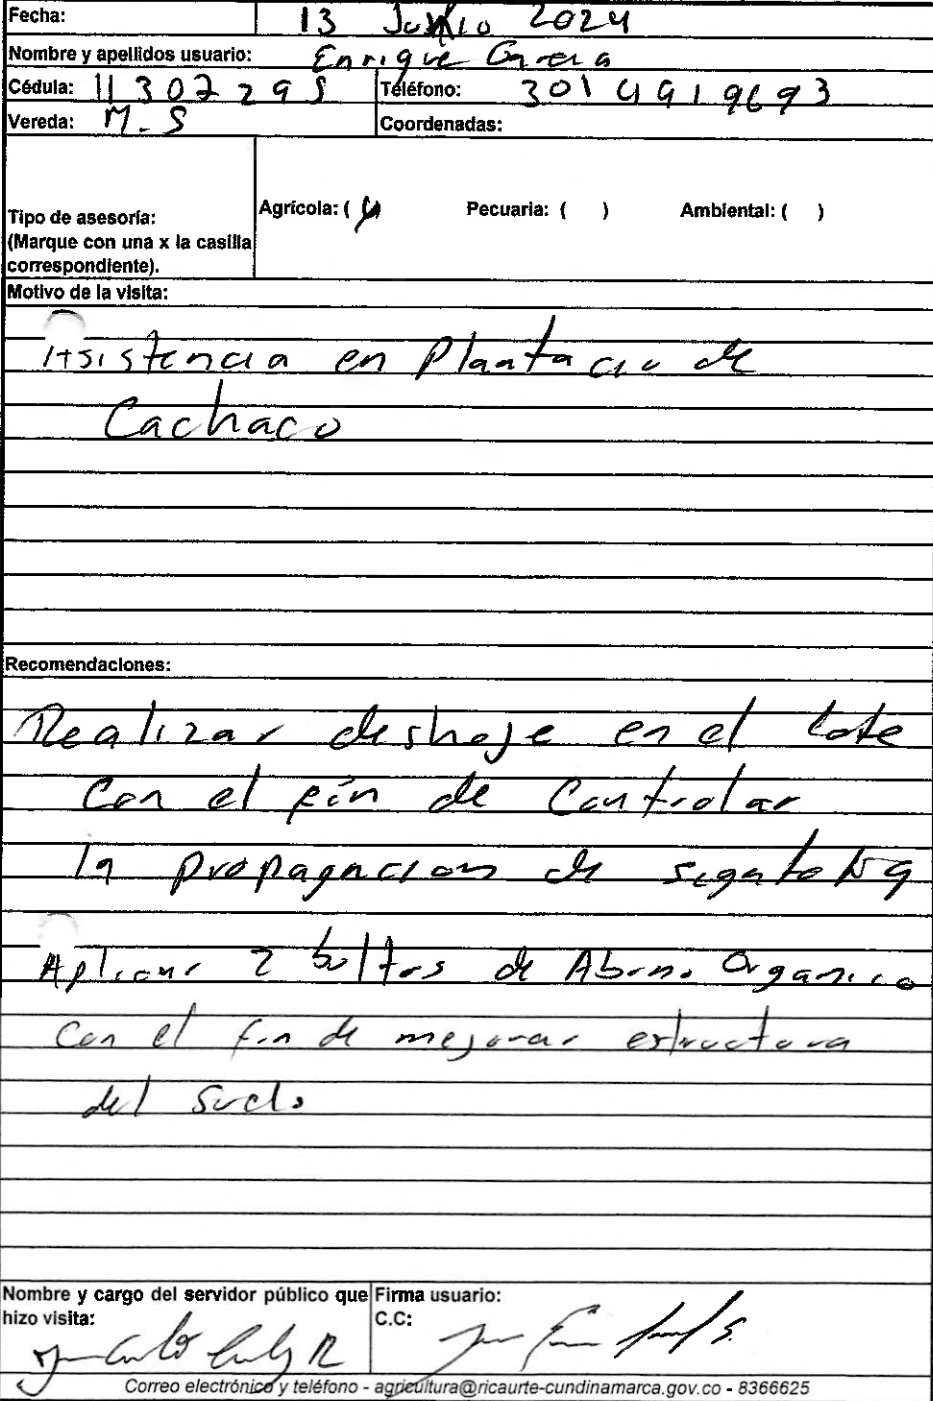 Fecha: 13 Junio 2024
Nombre y apellidos usuario: Enrique Garcia
Cédula: 11307295 Teléfono: 3014919693
Vereda: M-S Coordenadas:
Agrícola: ( ) Pecuaria: ( ) Ambiental: ( )
Tipo de asesoría:
(Marque con una x la casilla
correspondiente).
Motivo de la visita:
Asistencia en Plantacio de
Cachaco
Recomendaciones:
Realizar deshoje en el lote
Con el fin de Controlar
la propagacion de sigatoka
Aplicar 2 bultos de Abono Organico
Con el fin de mejorar estructura
del suelo
Nombre y cargo del servidor público que Firma usuario:
hizo visita: C.C:
Correo electrónico y teléfono - agricultura@ricaurte-cundinamarca.gov.co - 8366625